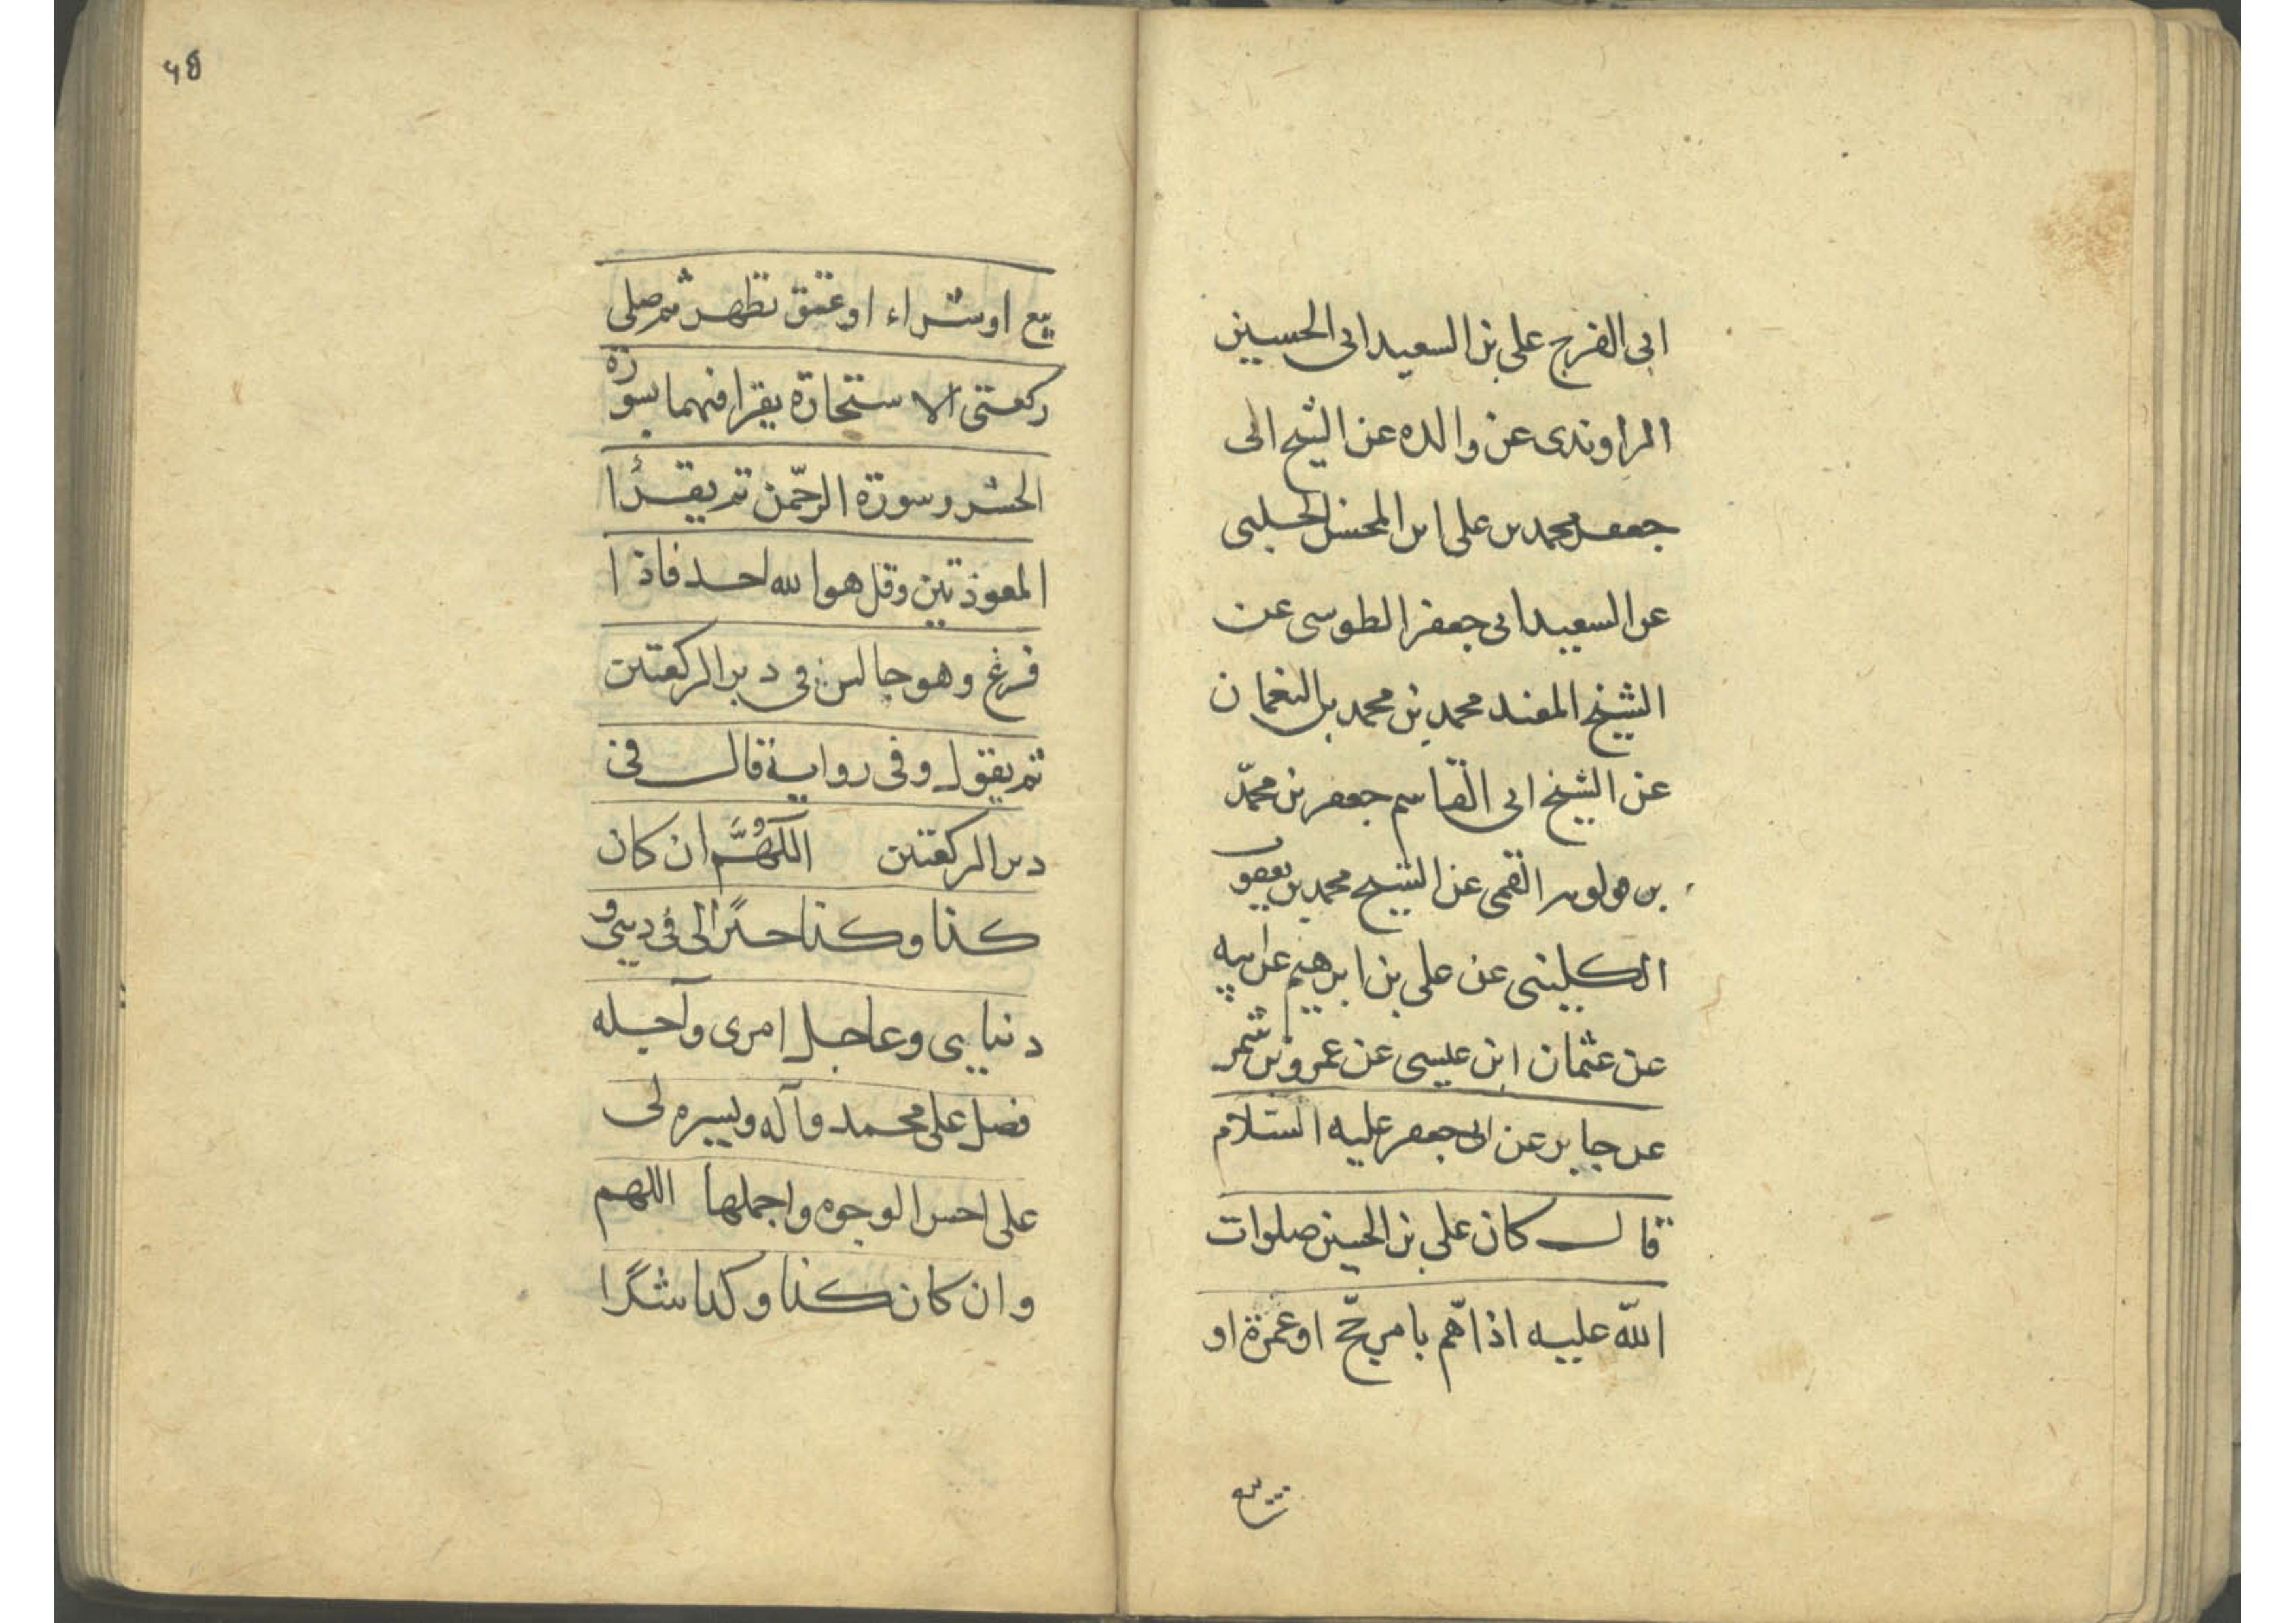 ابى الفرج على بن السعيد ابى الحسين
الراوندى عن والده عن الشيخ ابى
جعفر محمد بن على ابن المحسن الحلبى
عن السعيد ابى جعفر الطوسى عن
الشيخ المفيد محمد بن محمد بن النعمان
عن الشيخ ابى القاسم جعفر بن محمّد
بن قولويه القمى عن الشيخ محمد بن يعقوب
الكلينى عن على بن ابرهيم عن ابيه
عن عثمان ابن عيسى عن عمرو بن شمر
عن جابر عن ابى جعفر عليه السّلام
قال كان على بن الحسين صلوات
اللّه عليه اذا همّ بامر حجّ او عمرة او
بيع
۴۵
بيع او شراء او عتق تطهر ثم صلى
ركعتى الاستخارة يقرا فيهما بسورة
الحشر وسورة الرحّمن ثم يقرأ
المعوذتين وقل هو الله احد فاذا
فرغ وهو جالس فى دبر الركعتين
ثم يقول وفى رواية قال فى
دبر الركعتين اللّهُمَّ ان كان
كذا وكذا خيرًا لى فى دينى و
دنيايى وعاجل امرى وآجله
فصل على محمد وآله ويسره لى
على احسن الوجوه واجملها اللهم
وان كان كذا وكذا شرًا